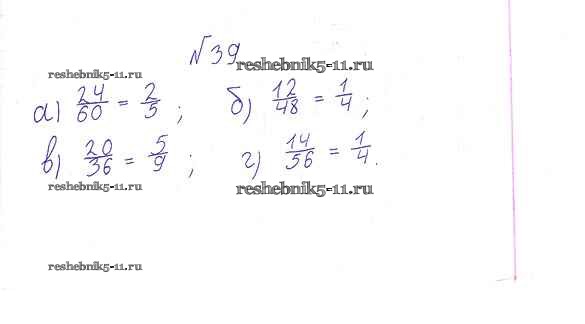 №39
reshebnik5-11.ru
reshebnik5-11.ru
а) 24/60 = 2/5 ; б) 12/48 = 1/4 ;
в) 20/36 = 5/9 ; г) 14/56 = 1/4.
reshebnik5-11.ru
reshebnik5-11.ru
reshebnik5-11.ru